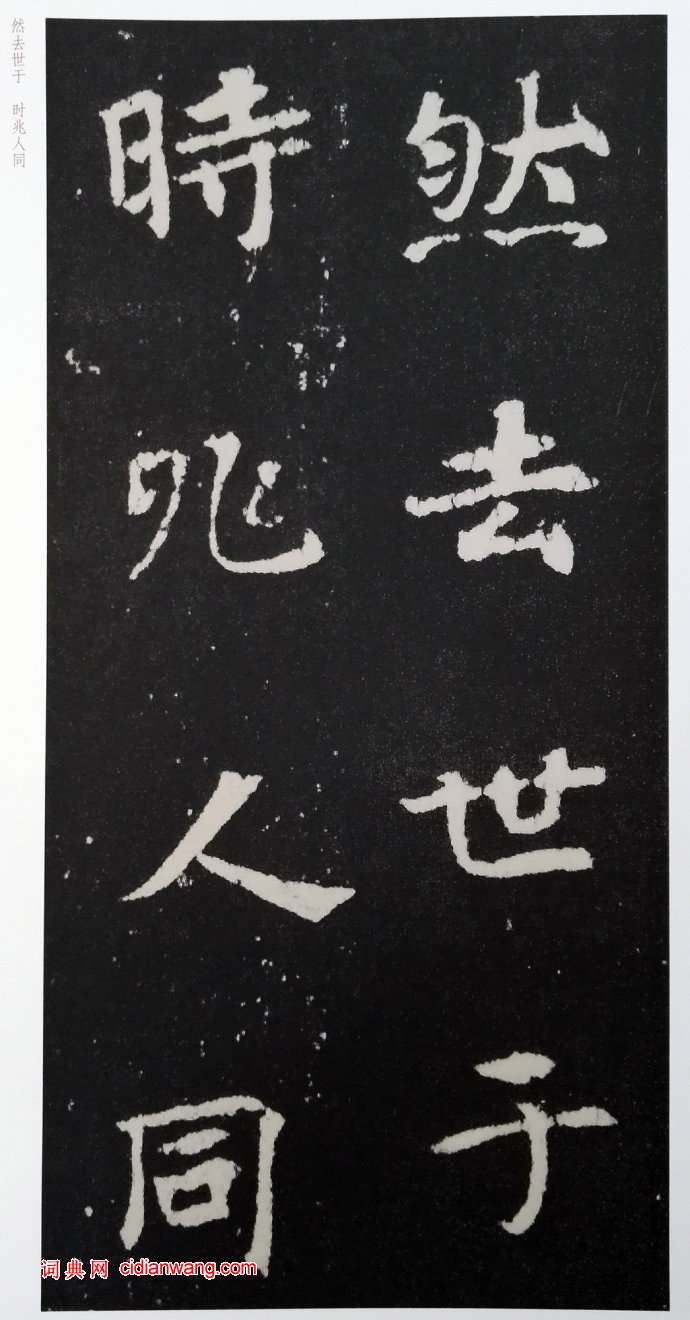 然去世于
時兆人同
然去世于 时兆人同
词典网 cidianwang.com